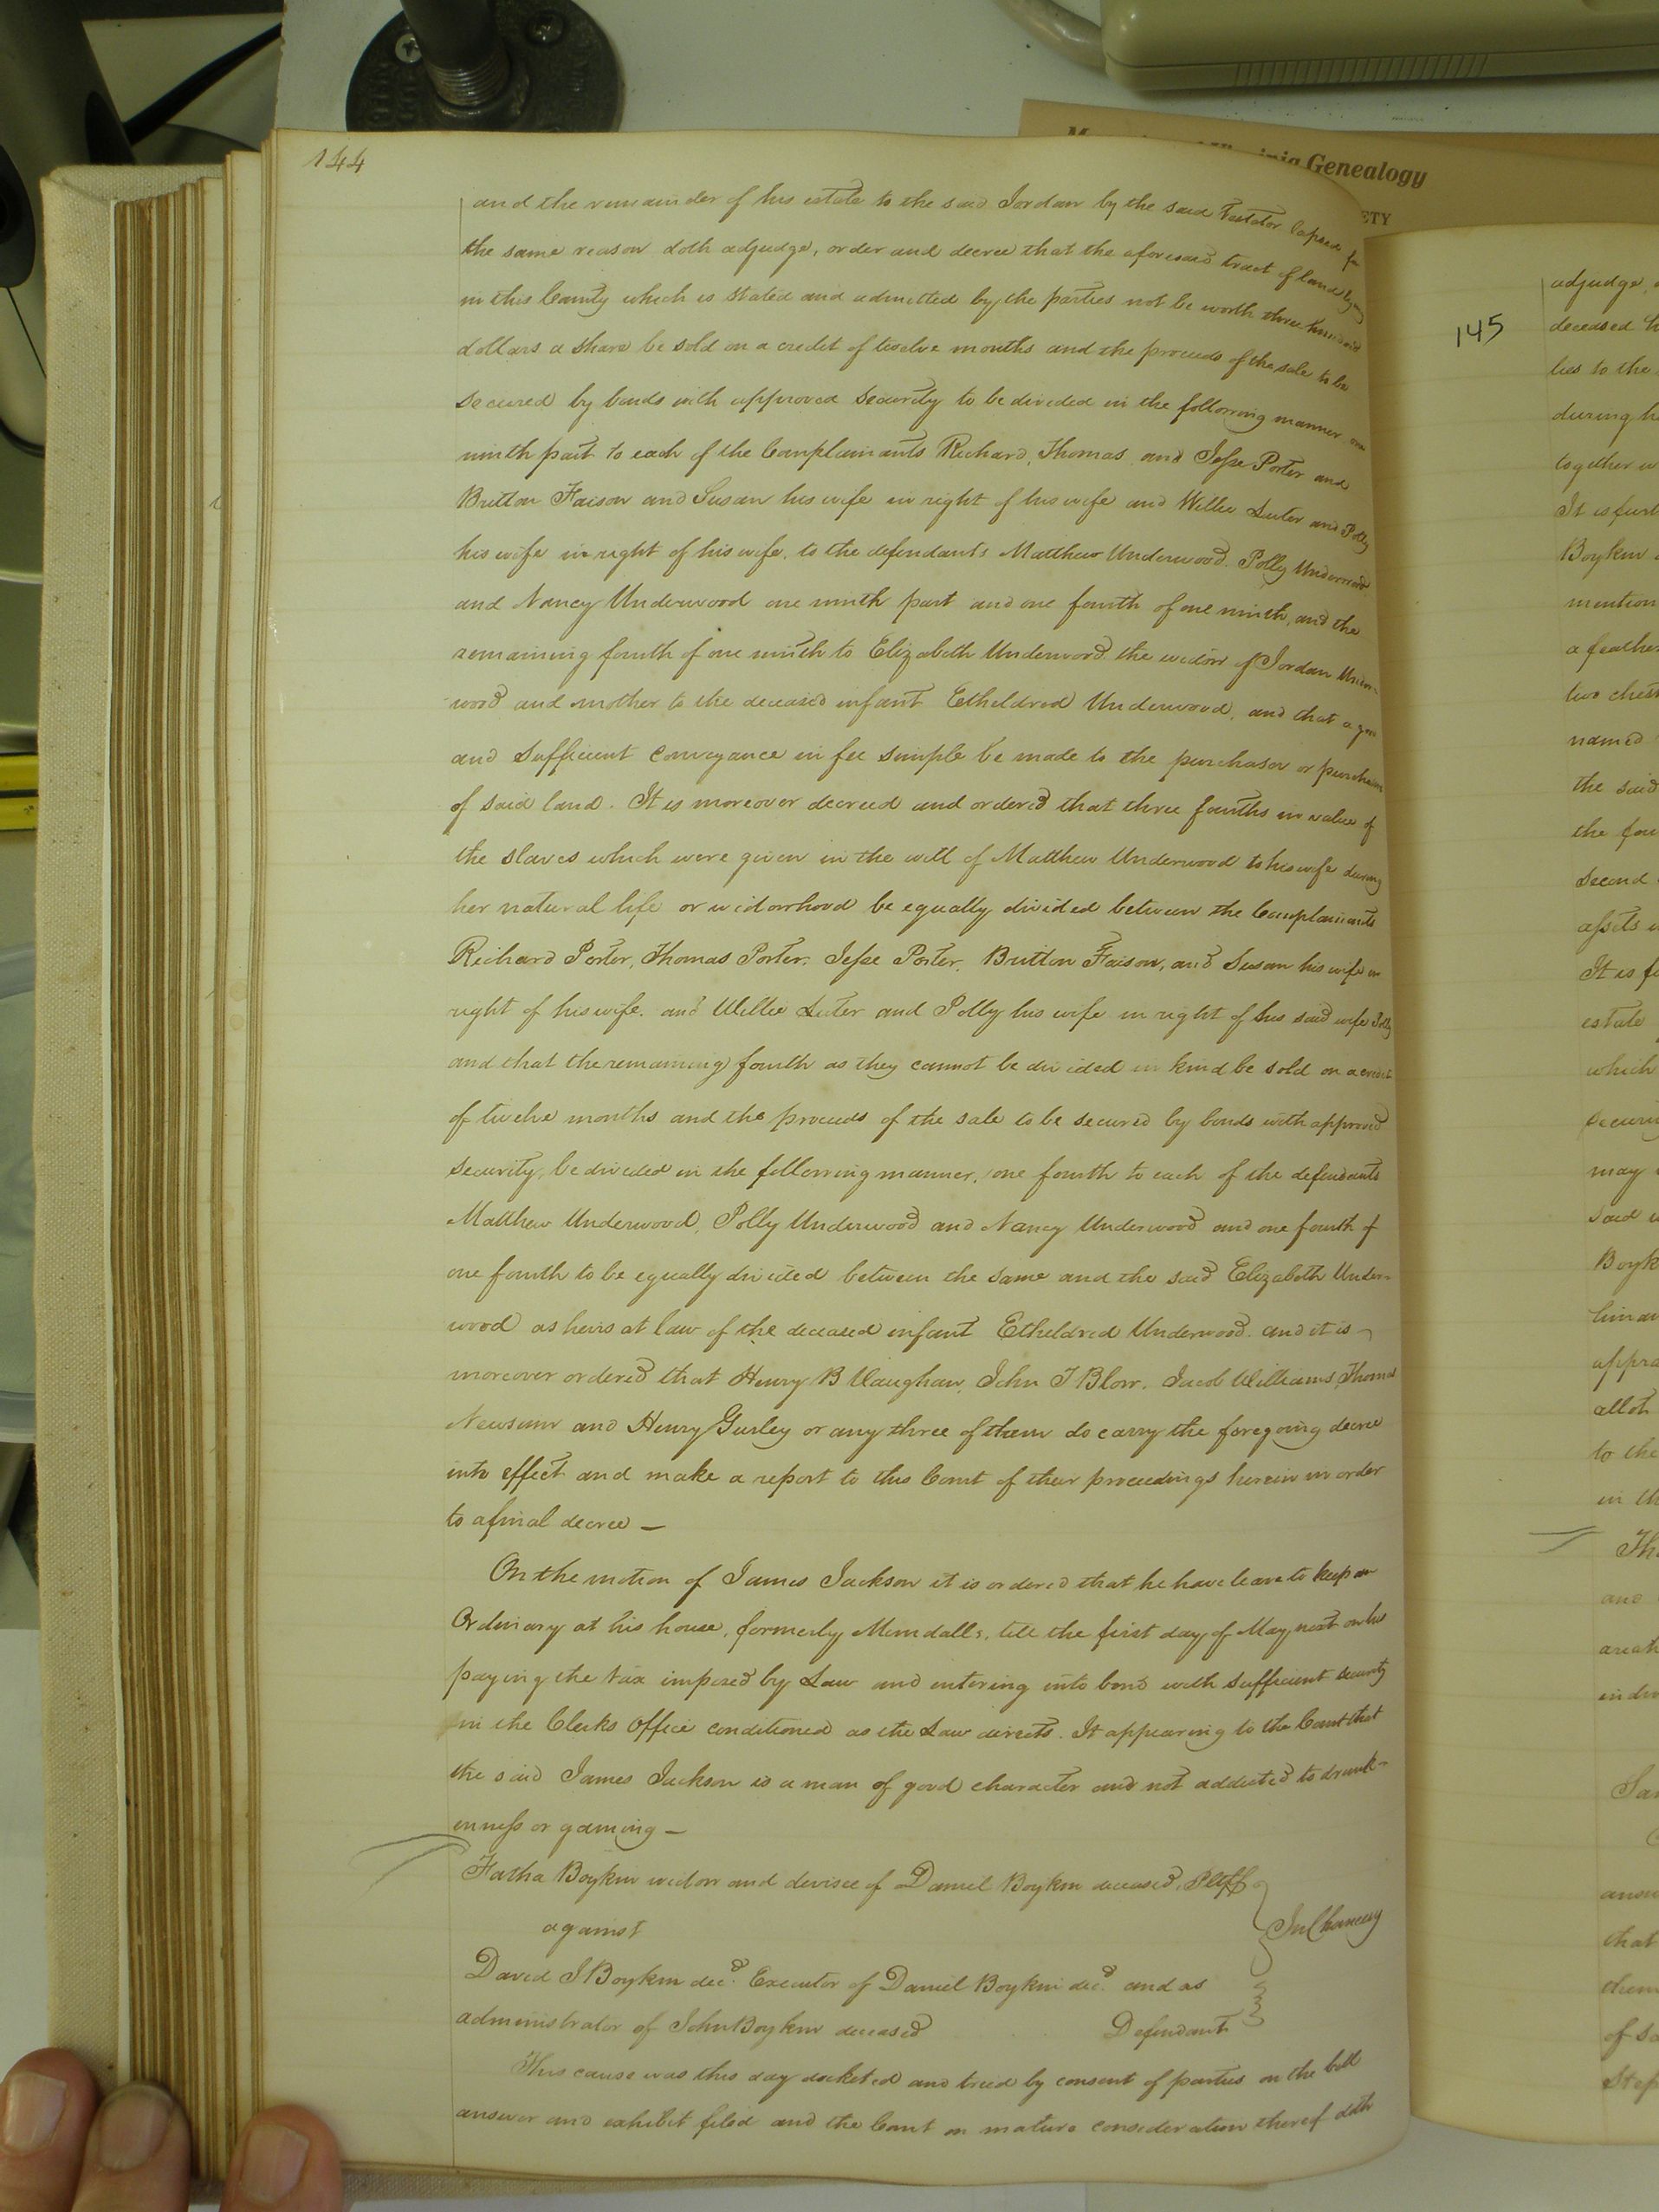 Genealogy
ETY
144
and the remainder of his estate to the said Jordan by the said Testator lapsed for
the same reason doth adjudge, order and decree that the aforesaid tract of land lying
in this County which is stated and admitted by the parties not be worth three hundred
dollars a share be sold on a credit of twelve months and the proceeds of the sale to be
secured by bonds with approved security to be divided in the following manner one
ninth part to each of the Complainants Richard, Thomas and Jesse Porter and
Britton Faison and Susan his wife in right of his wife and Willie Luter and Polly
his wife in right of his wife, to the defendants Matthew Underwood, Polly Underwood
and Nancy Underwood one ninth part and one fourth of one ninth, and the
remaining fourth of one ninth to Elizabeth Underwood the widow of Jordan Under-
wood and mother to the deceased infant Etheldred Underwood, and that a good
and sufficient conveyance in fee simple be made to the purchaser or purchasers
of said land. It is moreover decreed and ordered that three fourths in value of
the slaves which were given in the will of Matthew Underwood to his wife during
her natural life or widowhood be equally divided between the Complainants
Richard Porter, Thomas Porter, Jesse Porter, Britton Faison, and Susan his wife in
right of his wife, and Willie Luter and Polly his wife in right of his said wife Polly
and that the remaining fourth as they cannot be divided in kind be sold on a credit
of twelve months and the proceeds of the sale to be secured by bonds with approved
security, be divided in the following manner, one fourth to each of the defendants
Matthew Underwood, Polly Underwood and Nancy Underwood and one fourth of
one fourth to be equally divided between the same and the said Elizabeth Under-
wood as heirs at law of the deceased infant Etheldred Underwood. and it is
moreover ordered that Henry B Vaughan, John T Blow, Jacob Williams, Thomas
Newsum and Henry Gurley or any three of them do carry the foregoing decree
into effect and make a report to this Court of their proceedings herein in order
to a final decree —
On the motion of James Jackson it is ordered that he have leave to keep an
Ordinary at his house, formerly Mundalls, till the first day of May next on his
paying the tax imposed by Law and entering into bond with sufficient security
in the Clerks Office conditioned as the Law directs. It appearing to the Court that
the said James Jackson is a man of good character and not addicted to drunk-
enness or gaming —
Fatha Boykin widow and devisee of Daniel Boykin deceased, Pltff
against
In Chancery
David J Boykin decd. Executor of Daniel Boykin decd. and as
administrator of John Boykin deceased Defendant
This cause was this day docketed and tried by consent of parties on the bill
answer and exhibit filed and the Court on mature consideration thereof doth
145
adjudge,
deceased
lies to the
during
together
It is
Boykin
mention
a feather
two
named
the said
the
second
assets
It is
estate
which
may
said
allot
to the
in
and
that